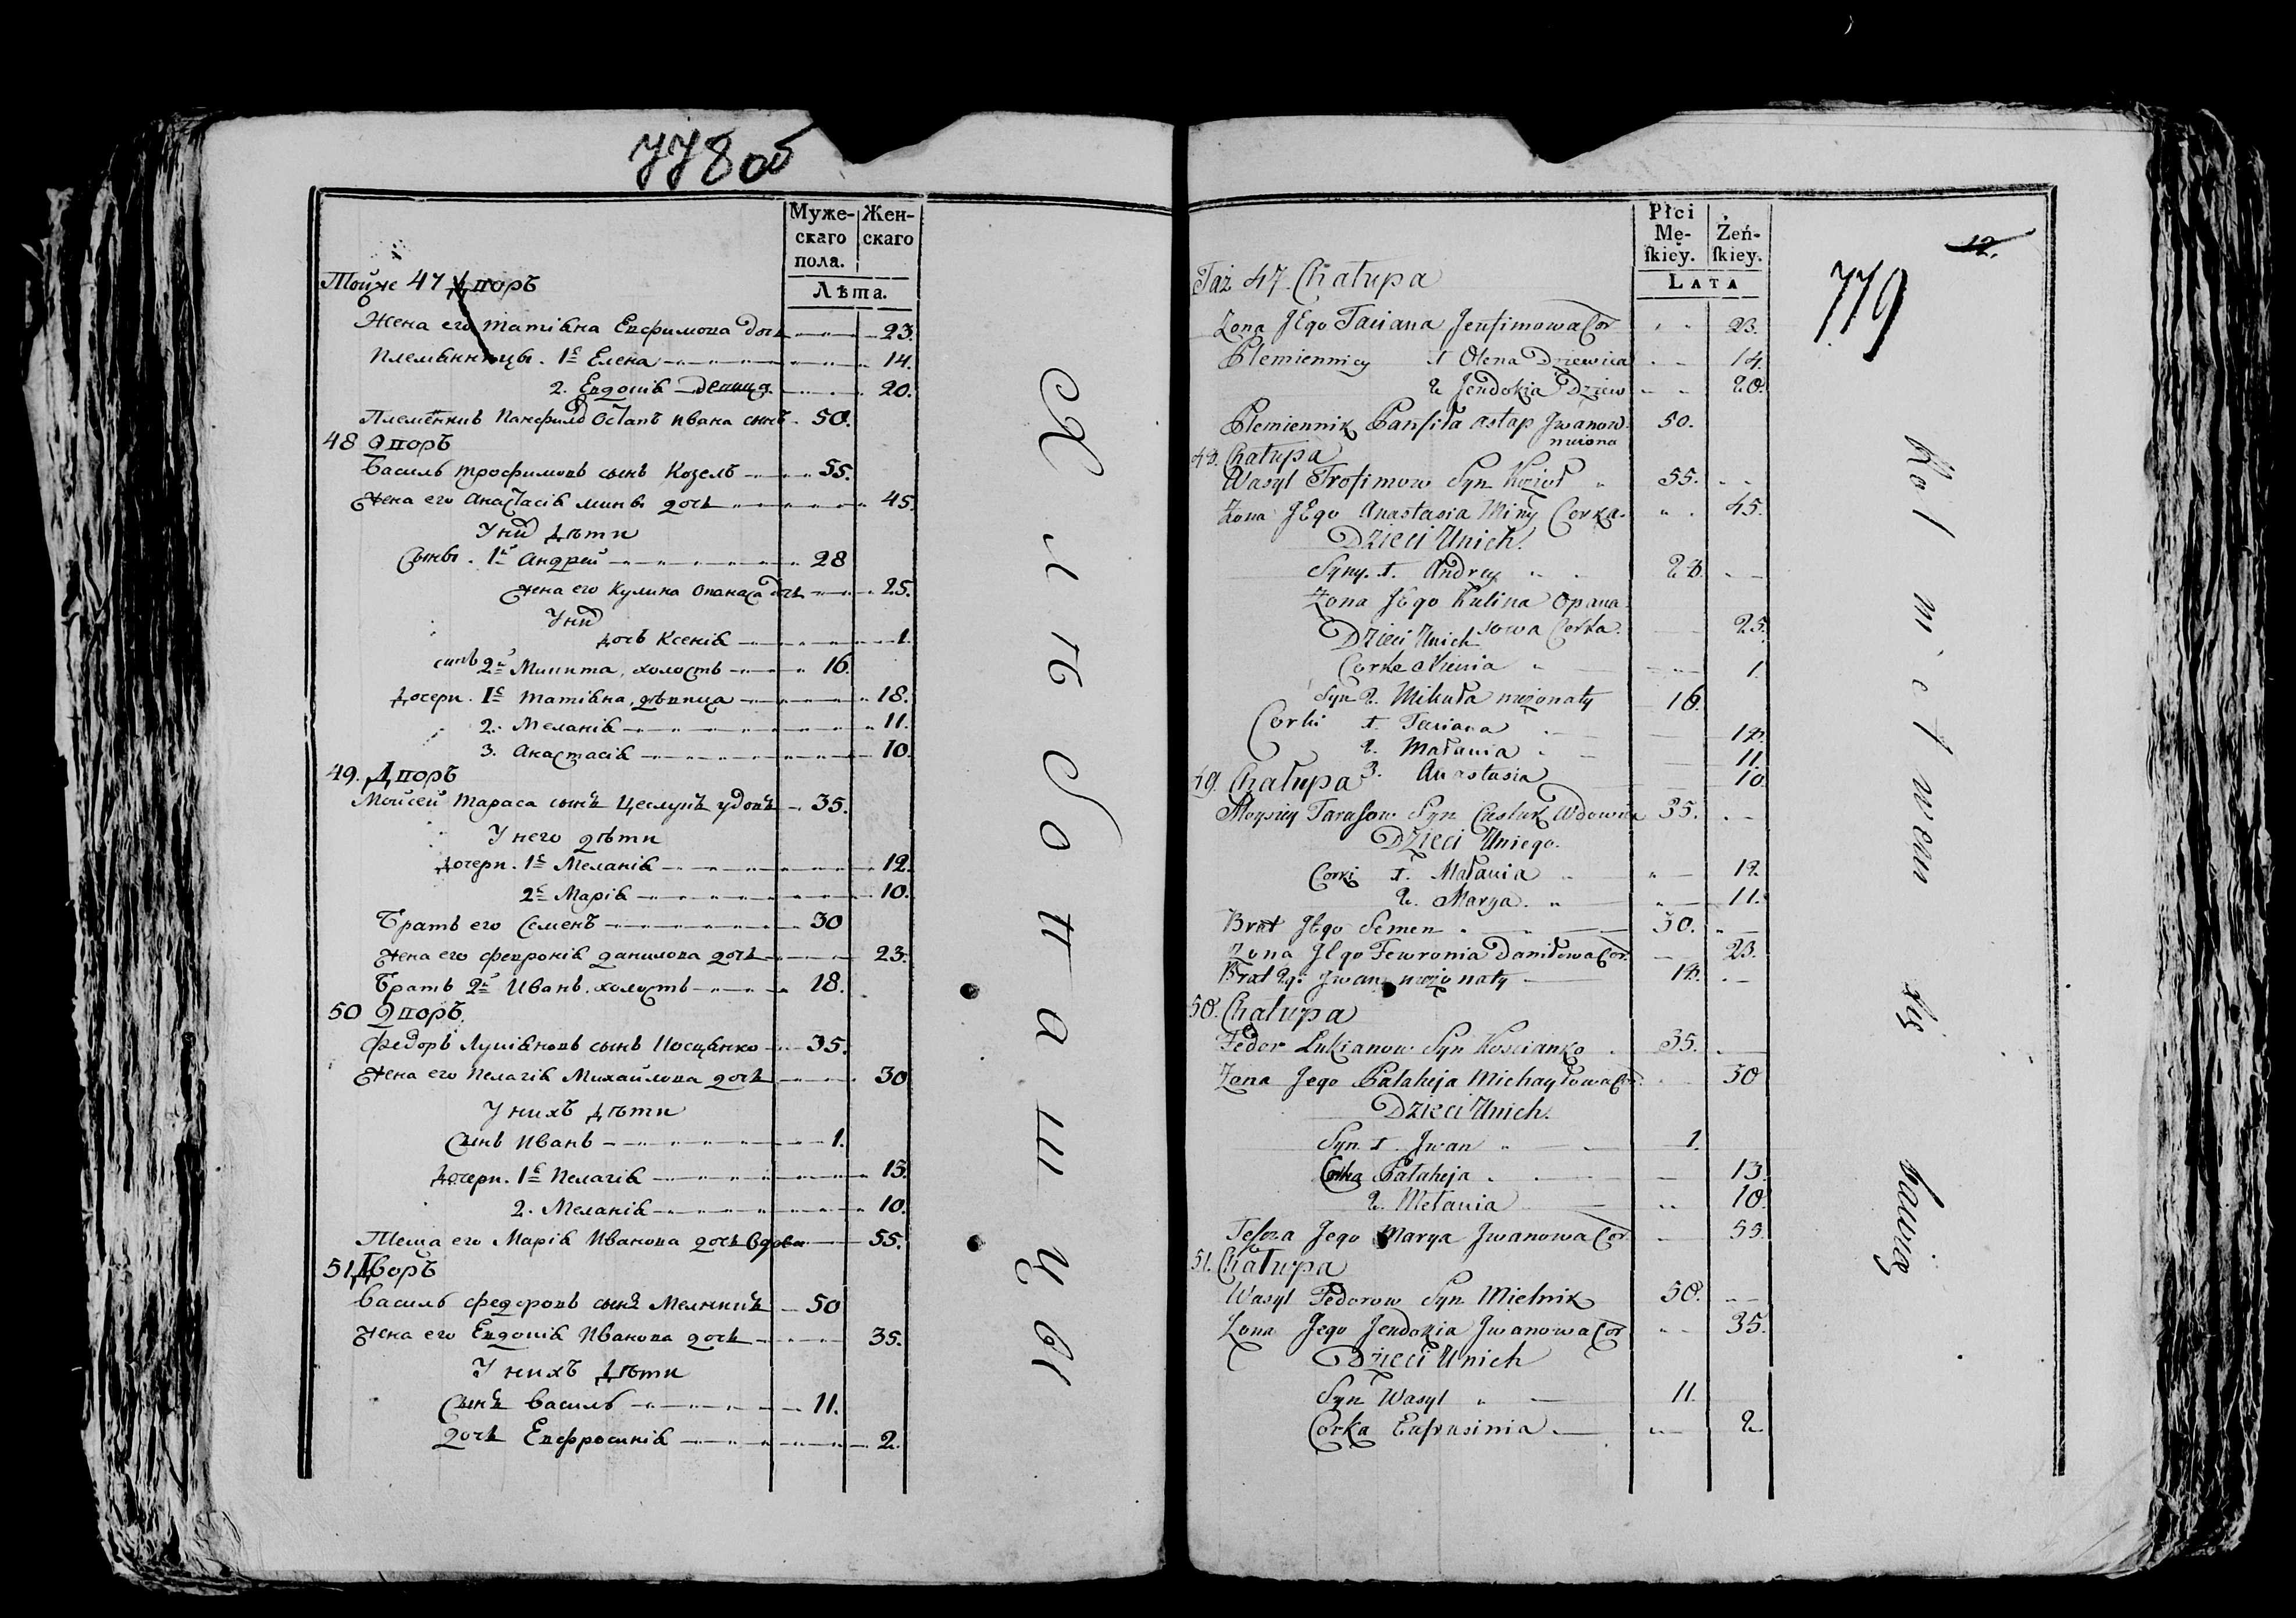 778 об
Муже-скаго пола. Жен-скаго
Лѣта.
Тойже 47 Дворъ
Жена его татіяна Евфимова дочь 23.
Племянницы. 1я Елена 14.
2. Евдокія девица 20.
Племенникъ Панфилъ Остапъ ивана сынъ 50.
48 Дворъ
Василь трофимовъ сынъ Козелъ 55.
Жена его Анастасія мины дочь 45.
У них дѣти
Сыны. 1й Андрей 28
Жена его Кулина Опанаса дочь 25.
У них
дочь Ксенія 1.
сынъ 2й Микита, холостъ 16.
дочери. 1я татіяна, дѣвица 18.
2. Меланія 11.
3. Анастасія 10.
49. Дворъ
Мойсей тараса сынъ Цеслукъ удовъ 35.
У него дѣти
дочери. 1я Меланія 12.
2я Марія 10.
Братъ его Семенъ 30
Жена его февронія данилова дочь 23.
Братъ 2й Иванъ, холостъ 18.
50 Дворъ
Федоръ Лукіяновъ сынъ Косцянко 35.
Жена его Пелагія Михайлова дочь 30
У нихъ дѣти
Сынъ Иванъ 1.
дочери. 1я Пелагія 13.
2. Меланія 10.
Теща его Марія Иванова дочь Вдова 55.
51 Дворъ
Василь федоровъ сынъ Мельникъ 50
Жена его Евдокія Иванова дочь 35.
У нихъ дѣти
Сынъ Василь 11.
Дочь Евфросинія 2.
Хлѣбопашцы
12.
779
Płci Mę-ſkiey. Żeń-ſkiey.
LATA
Taż 47. Chałupa
Żona JEgo Taciana Jeufimowa Cor 23.
Plemiennicy 1 Olena Dziewica 14.
2 Jendokia Dziew 20.
Plemiennik Panfiła astap Jwanow 50.
48. Chałupa
Wasyl Trofimow Syn Kozioł 55.
Żona JEgo Anastasia Miny Corka 45.
Dzieci Unich.
Syny. 1. Andrey 28.
Żona JEgo Kulina Opana
sowa Corka. 25.
Dzieci Unich
Corka Xienia 1.
Syn 2. Mikuta nieżonaty 16.
Corki 1. Taciana 18.
2. Małania 11.
3. Anastasia 10.
49. Chałupa
Moysiey Tarasow Syn Cesluk Wdowiec 35.
Dzieci Uniego.
Corki 1. Małania 12.
2. Marya. 11.
Brat JEgo Semen 30.
Żona JEgo Fewronia Daniłowa Cor. 23.
Brat 2gi Jwan nieżonaty 18.
50. Chałupa
Fedor Lukianow Syn Koscianko 35.
Żona Jego Pałaheja Michayłowa Cor. 30
Dzieci Unich.
Syn. 1. Jwan 1.
Corka Pałaheja 13.
2. Mełania 10.
Teſcza Jego Marya Jwanowa Cor 55.
51. Chałupa
Wasyl Fedorow Syn Mielnik 50.
Żona Jego Jendokia Jwanowa Cor 35.
Dzieci Unich
Syn Wasyl 11.
Corka Eufrusinia 2
Rolnictwem się bawią